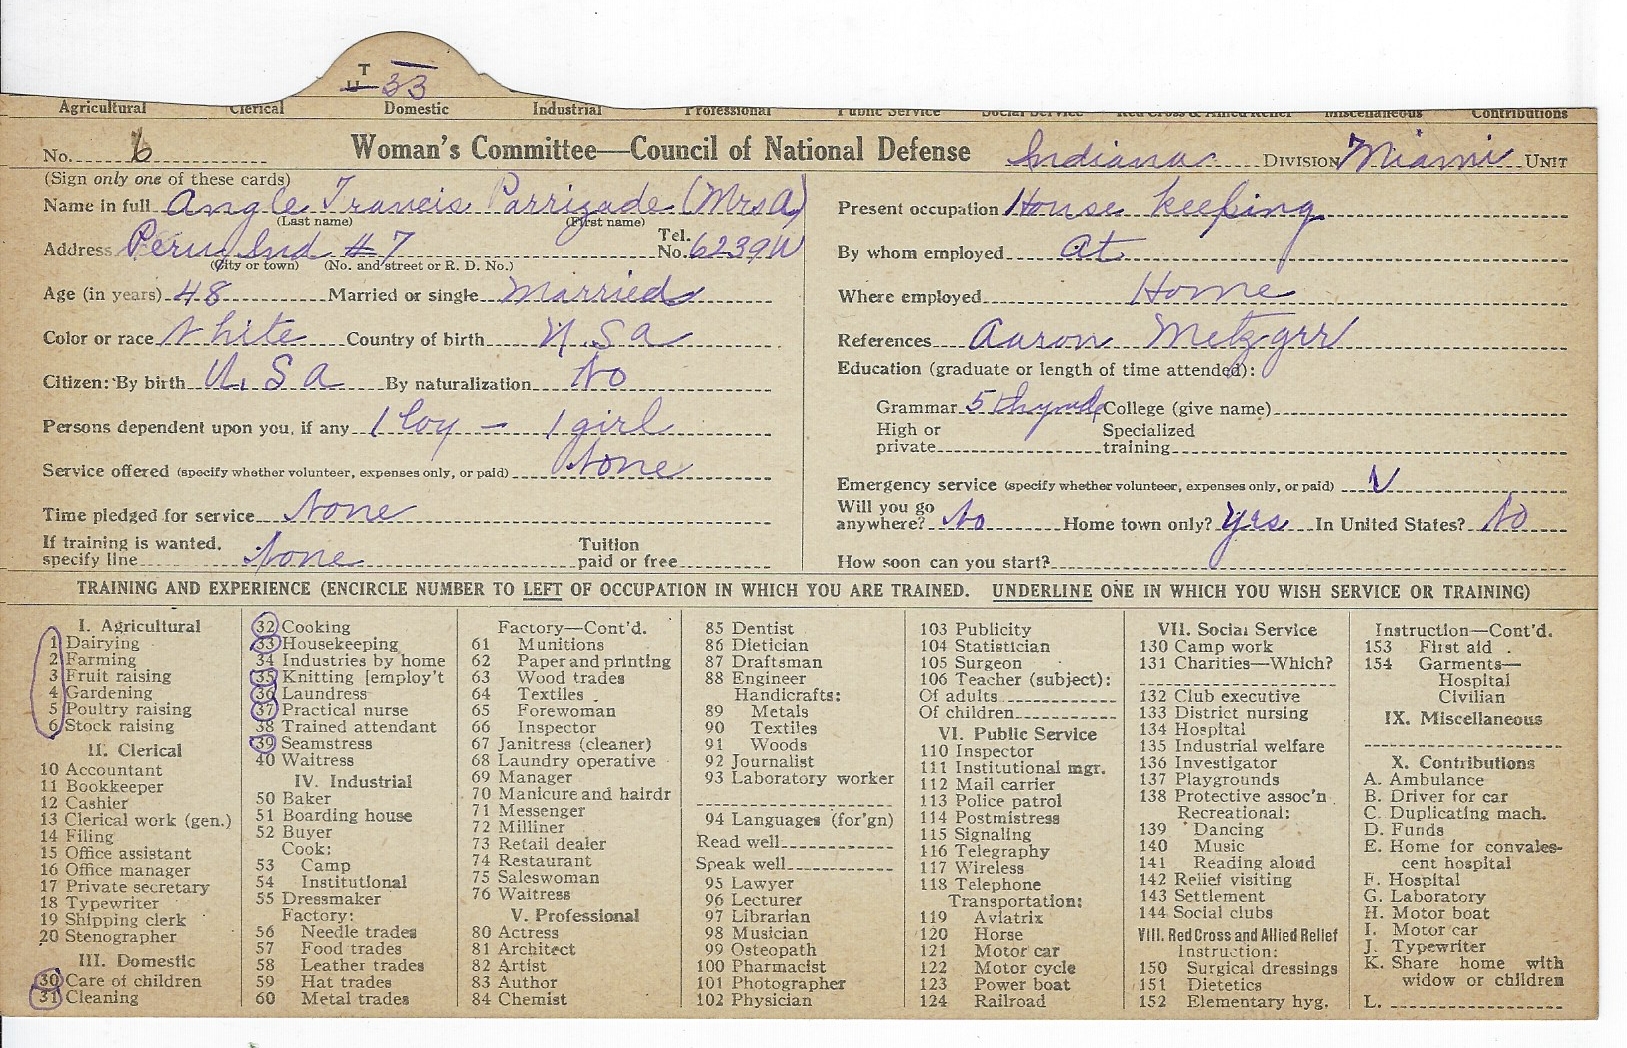 T
U 33
Agricultural Clerical Domestic Industrial Professional Public Service Social Service Red Cross & Allied Relief Miscellaneous Contributions
No. 6 Woman's Committee—Council of National Defense Indiana DIVISION Miami UNIT
(Sign only one of these cards)
Name in full Angle Francis Parrizade (Mrs A)
(Last name) (First name)
Address Peru Ind #7 Tel. No. 6239W
(City or town) (No. and street or R. D. No.)
Age (in years) 48 Married or single Married
Color or race White Country of birth U.S.a
Citizen: By birth U.S a By naturalization No
Persons dependent upon you, if any 1 boy — 1 girl
Service offered (specify whether volunteer, expenses only, or paid) None
Time pledged for service None
If training is wanted, specify line None Tuition paid or free
Present occupation House keeping
By whom employed at
Where employed Home
References Aaron Metzgrr
Education (graduate or length of time attended):
Grammar 5th grade College (give name)
High or private Specialized training
Emergency service (specify whether volunteer, expenses only, or paid) V
Will you go anywhere? No Home town only? Yes In United States? No
How soon can you start?
TRAINING AND EXPERIENCE (ENCIRCLE NUMBER TO LEFT OF OCCUPATION IN WHICH YOU ARE TRAINED. UNDERLINE ONE IN WHICH YOU WISH SERVICE OR TRAINING)
I. Agricultural
1 Dairying
2 Farming
3 Fruit raising
4 Gardening
5 Poultry raising
6 Stock raising
II. Clerical
10 Accountant
11 Bookkeeper
12 Cashier
13 Clerical work (gen.)
14 Filing
15 Office assistant
16 Office manager
17 Private secretary
18 Typewriter
19 Shipping clerk
20 Stenographer
III. Domestic
30 Care of children
31 Cleaning
32 Cooking
33 Housekeeping
34 Industries by home
35 Knitting [employ't
36 Laundress
37 Practical nurse
38 Trained attendant
39 Seamstress
40 Waitress
IV. Industrial
50 Baker
51 Boarding house
52 Buyer
Cook:
53 Camp
54 Institutional
55 Dressmaker
Factory:
56 Needle trades
57 Food trades
58 Leather trades
59 Hat trades
60 Metal trades
Factory—Cont'd.
61 Munitions
62 Paper and printing
63 Wood trades
64 Textiles
65 Forewoman
66 Inspector
67 Janitress (cleaner)
68 Laundry operative
69 Manager
70 Manicure and hairdr
71 Messenger
72 Milliner
73 Retail dealer
74 Restaurant
75 Saleswoman
76 Waitress
V. Professional
80 Actress
81 Architect
82 Artist
83 Author
84 Chemist
85 Dentist
86 Dietician
87 Draftsman
88 Engineer
Handicrafts:
89 Metals
90 Textiles
91 Woods
92 Journalist
93 Laboratory worker
94 Languages (for'gn)
Read well
Speak well
95 Lawyer
96 Lecturer
97 Librarian
98 Musician
99 Osteopath
100 Pharmacist
101 Photographer
102 Physician
103 Publicity
104 Statistician
105 Surgeon
106 Teacher (subject):
Of adults
Of children
VI. Public Service
110 Inspector
111 Institutional mgr.
112 Mail carrier
113 Police patrol
114 Postmistress
115 Signaling
116 Telegraphy
117 Wireless
118 Telephone
Transportation:
119 Aviatrix
120 Horse
121 Motor car
122 Motor cycle
123 Power boat
124 Railroad
VII. Social Service
130 Camp work
131 Charities—Which?
132 Club executive
133 District nursing
134 Hospital
135 Industrial welfare
136 Investigator
137 Playgrounds
138 Protective assoc'n
Recreational:
139 Dancing
140 Music
141 Reading aloud
142 Relief visiting
143 Settlement
144 Social clubs
VIII. Red Cross and Allied Relief
Instruction:
150 Surgical dressings
151 Dietetics
152 Elementary hyg.
Instruction—Cont'd.
153 First aid
154 Garments—
Hospital
Civilian
IX. Miscellaneous
X. Contributions
A. Ambulance
B. Driver for car
C. Duplicating mach.
D. Funds
E. Home for convales-
cent hospital
F. Hospital
G. Laboratory
H. Motor boat
I. Motor car
J. Typewriter
K. Share home with
widow or children
L.